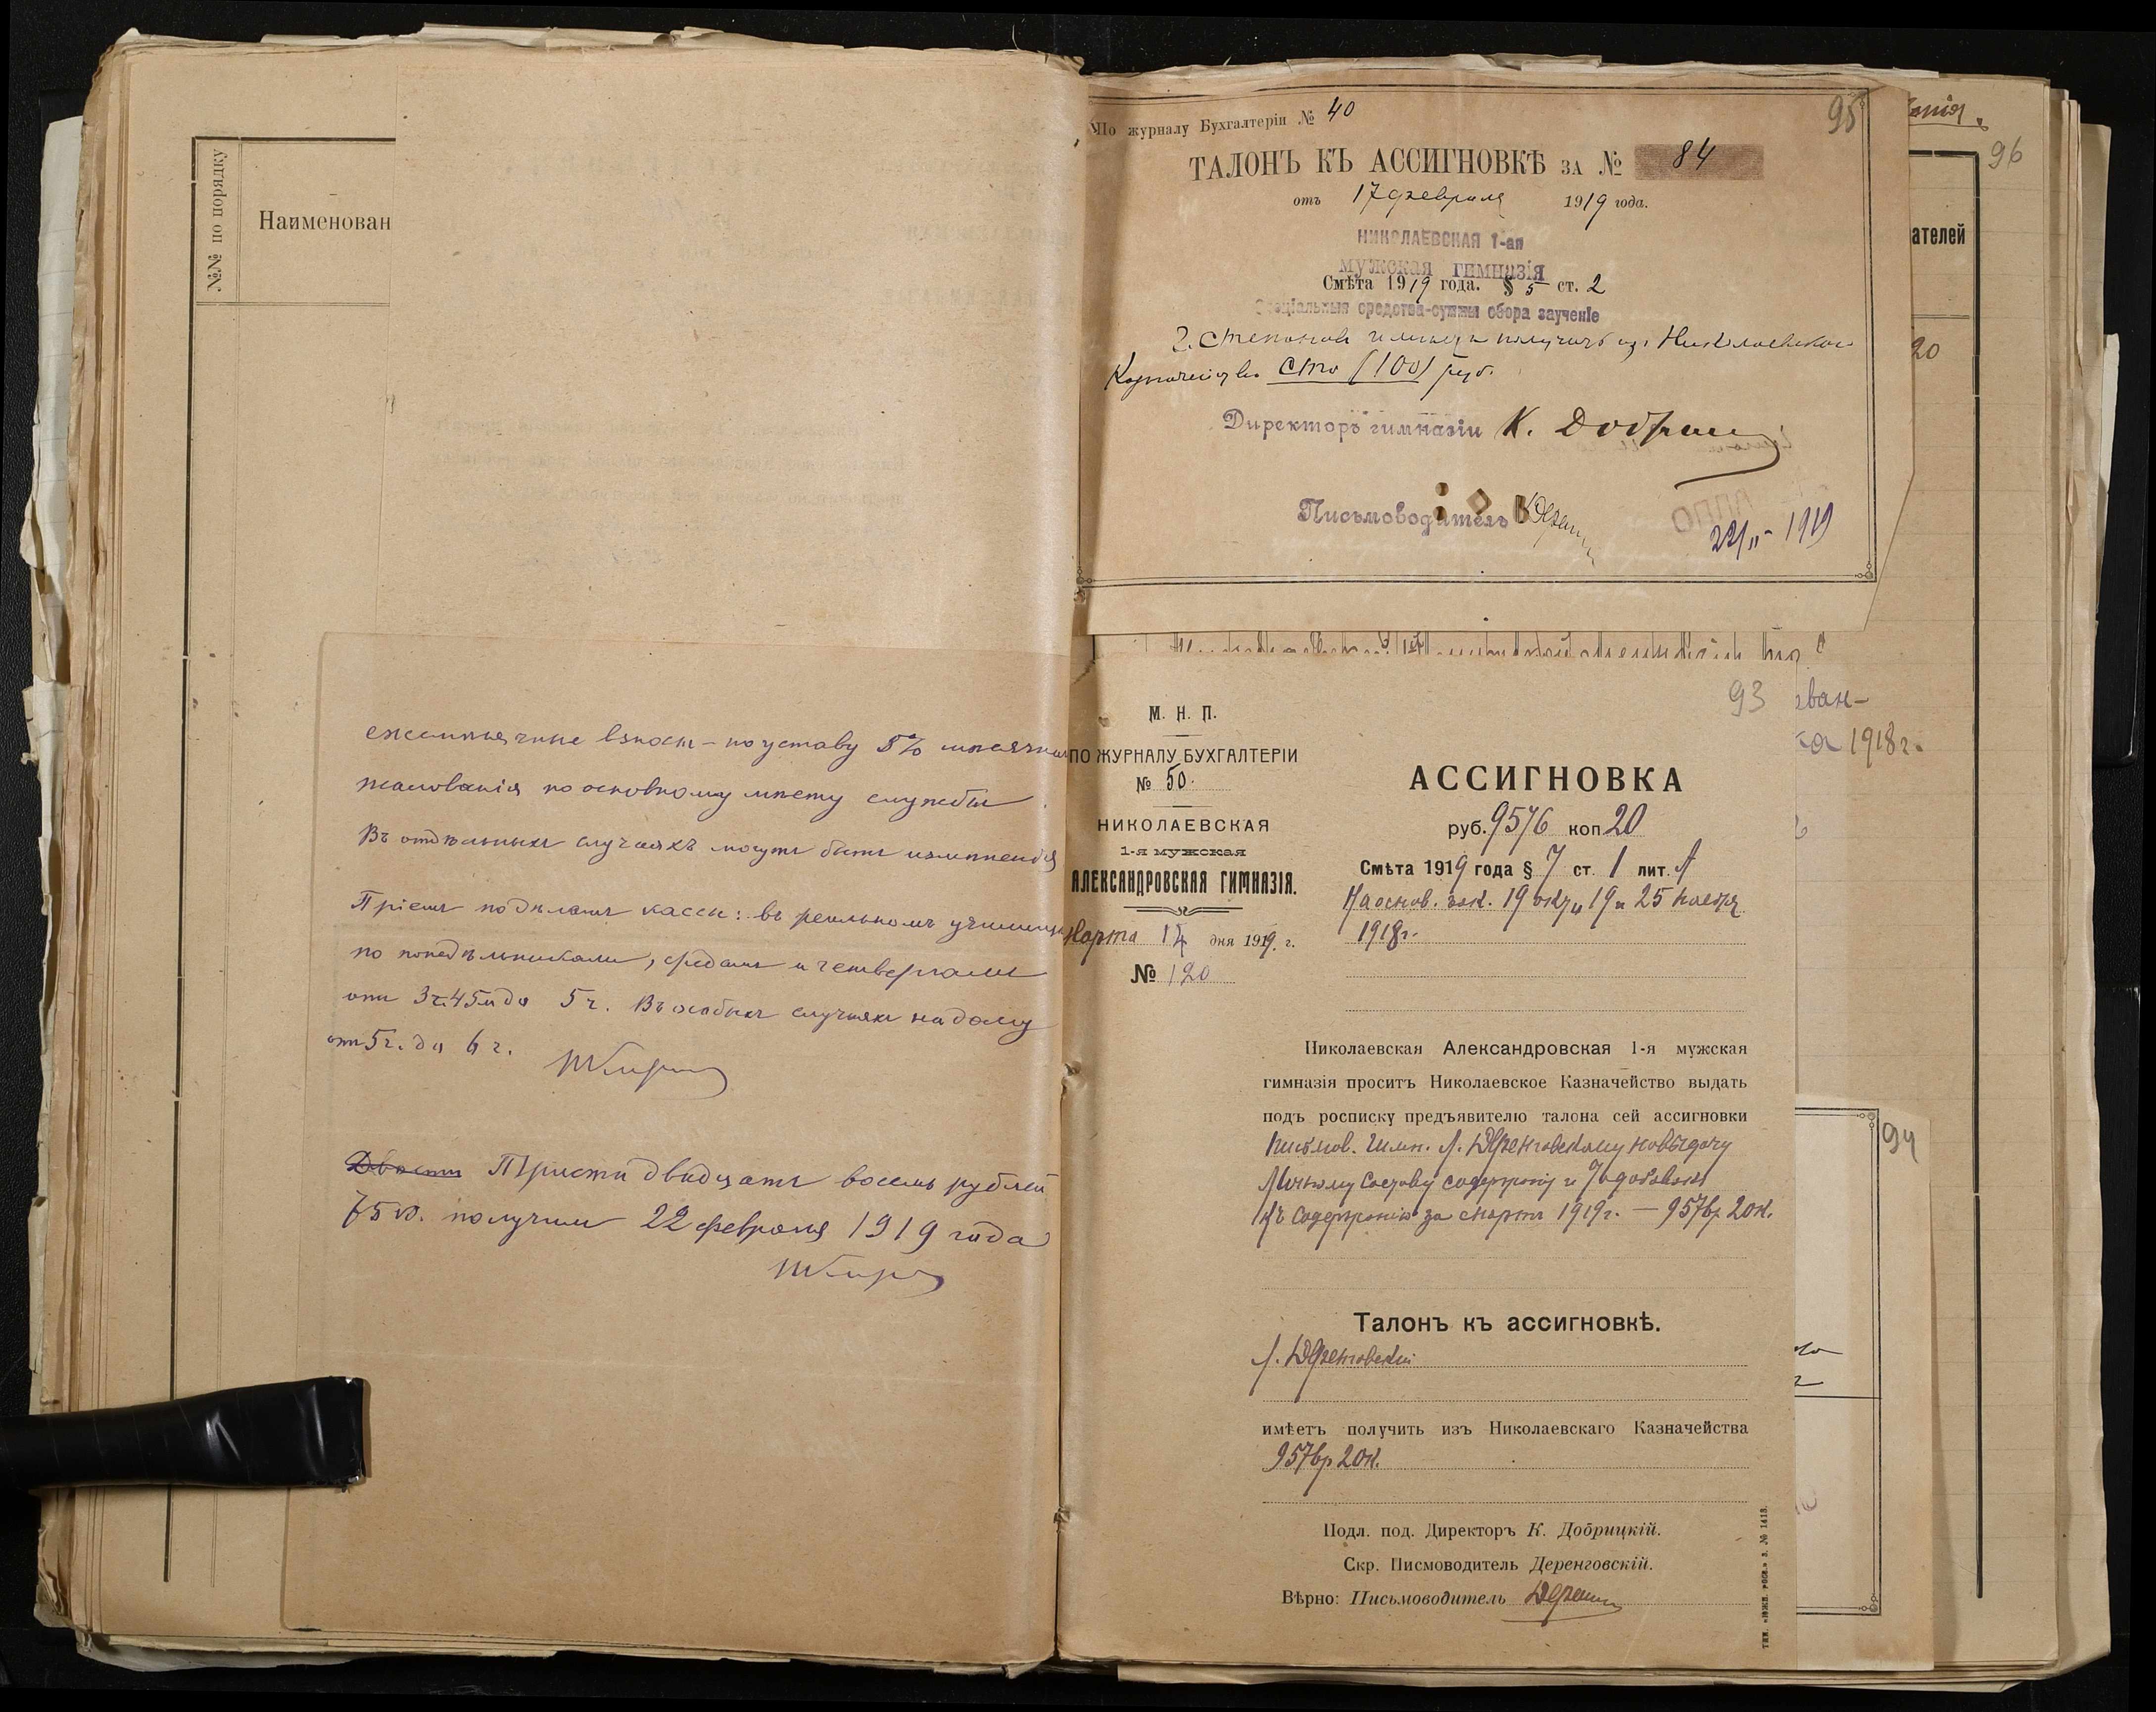 №№ по порядку
Наименован
ежемѣсячные взносы – по уставу 5% мѣсячнаго
жалованія по основному мѣсту службы.
Въ отдѣльныхъ случаяхъ могутъ быть измѣненія
Пріемъ по дѣламъ кассы: въ реальномъ училищѣ
по понедѣльникамъ, средамъ и четвергамъ
отъ 3ч.45м до 5ч. Въ особыхъ случаяхъ на дому
отъ 5ч. до 6ч.
Двѣсти Триста двадцать восемь рублей
75 к. получилъ 22 февраля 1919 года
По журналу Бухгалтеріи № 40
95
ТАЛОНЪ КЪ АССИГНОВКѢ ЗА № 84
отъ 17 февраля 1919 года.
НИКОЛАЕВСКАЯ 1-ая
мужская гимназія
Смѣта 1919 года. § 5 ст. 2
Спеціальныя средства-суммы сбора за ученіе
Г. Степановъ имѣетъ получить изъ Николаевскаго
Казначейства сто (100) руб.
Директоръ гимназіи К. Добриц
Письмоводитель Дерен
22/II 1919
93
М. Н. П.
ПО ЖУРНАЛУ БУХГАЛТЕРІИ
№ 50.
НИКОЛАЕВСКАЯ
1-я мужская
АЛЕКСАНДРОВСКАЯ ГИМНАЗІЯ.
Марта 14 дня 1919. г.
№ 120
АССИГНОВКА
руб. 9576 коп 20
Смѣта 1919 года § 7 ст. 1 лит. А
На основ. зак. 19 окт. 19 и 25 ноября
1918 г.
Николаевская Александровская 1-я мужская
гимназія проситъ Николаевское Казначейство выдать
подъ росписку предъявителю талона сей ассигновки
Письмов. Гимн. Л. Деренговскому на выдачу
Личному Составу содержанія и добавокъ
къ содержанію за Мартъ 1919 г. — 9576р. 20к.
Талонъ къ ассигновкѣ.
Л. Деренговскій
имѣетъ получить изъ Николаевскаго Казначейства
9576р 20к.
Подл. под. Директоръ К. Добрицкій.
Скр. Писмоводитель Деренговскій.
Вѣрно: Письмоводитель Дерен
96
ателей
20
ван–
1918 г.
94